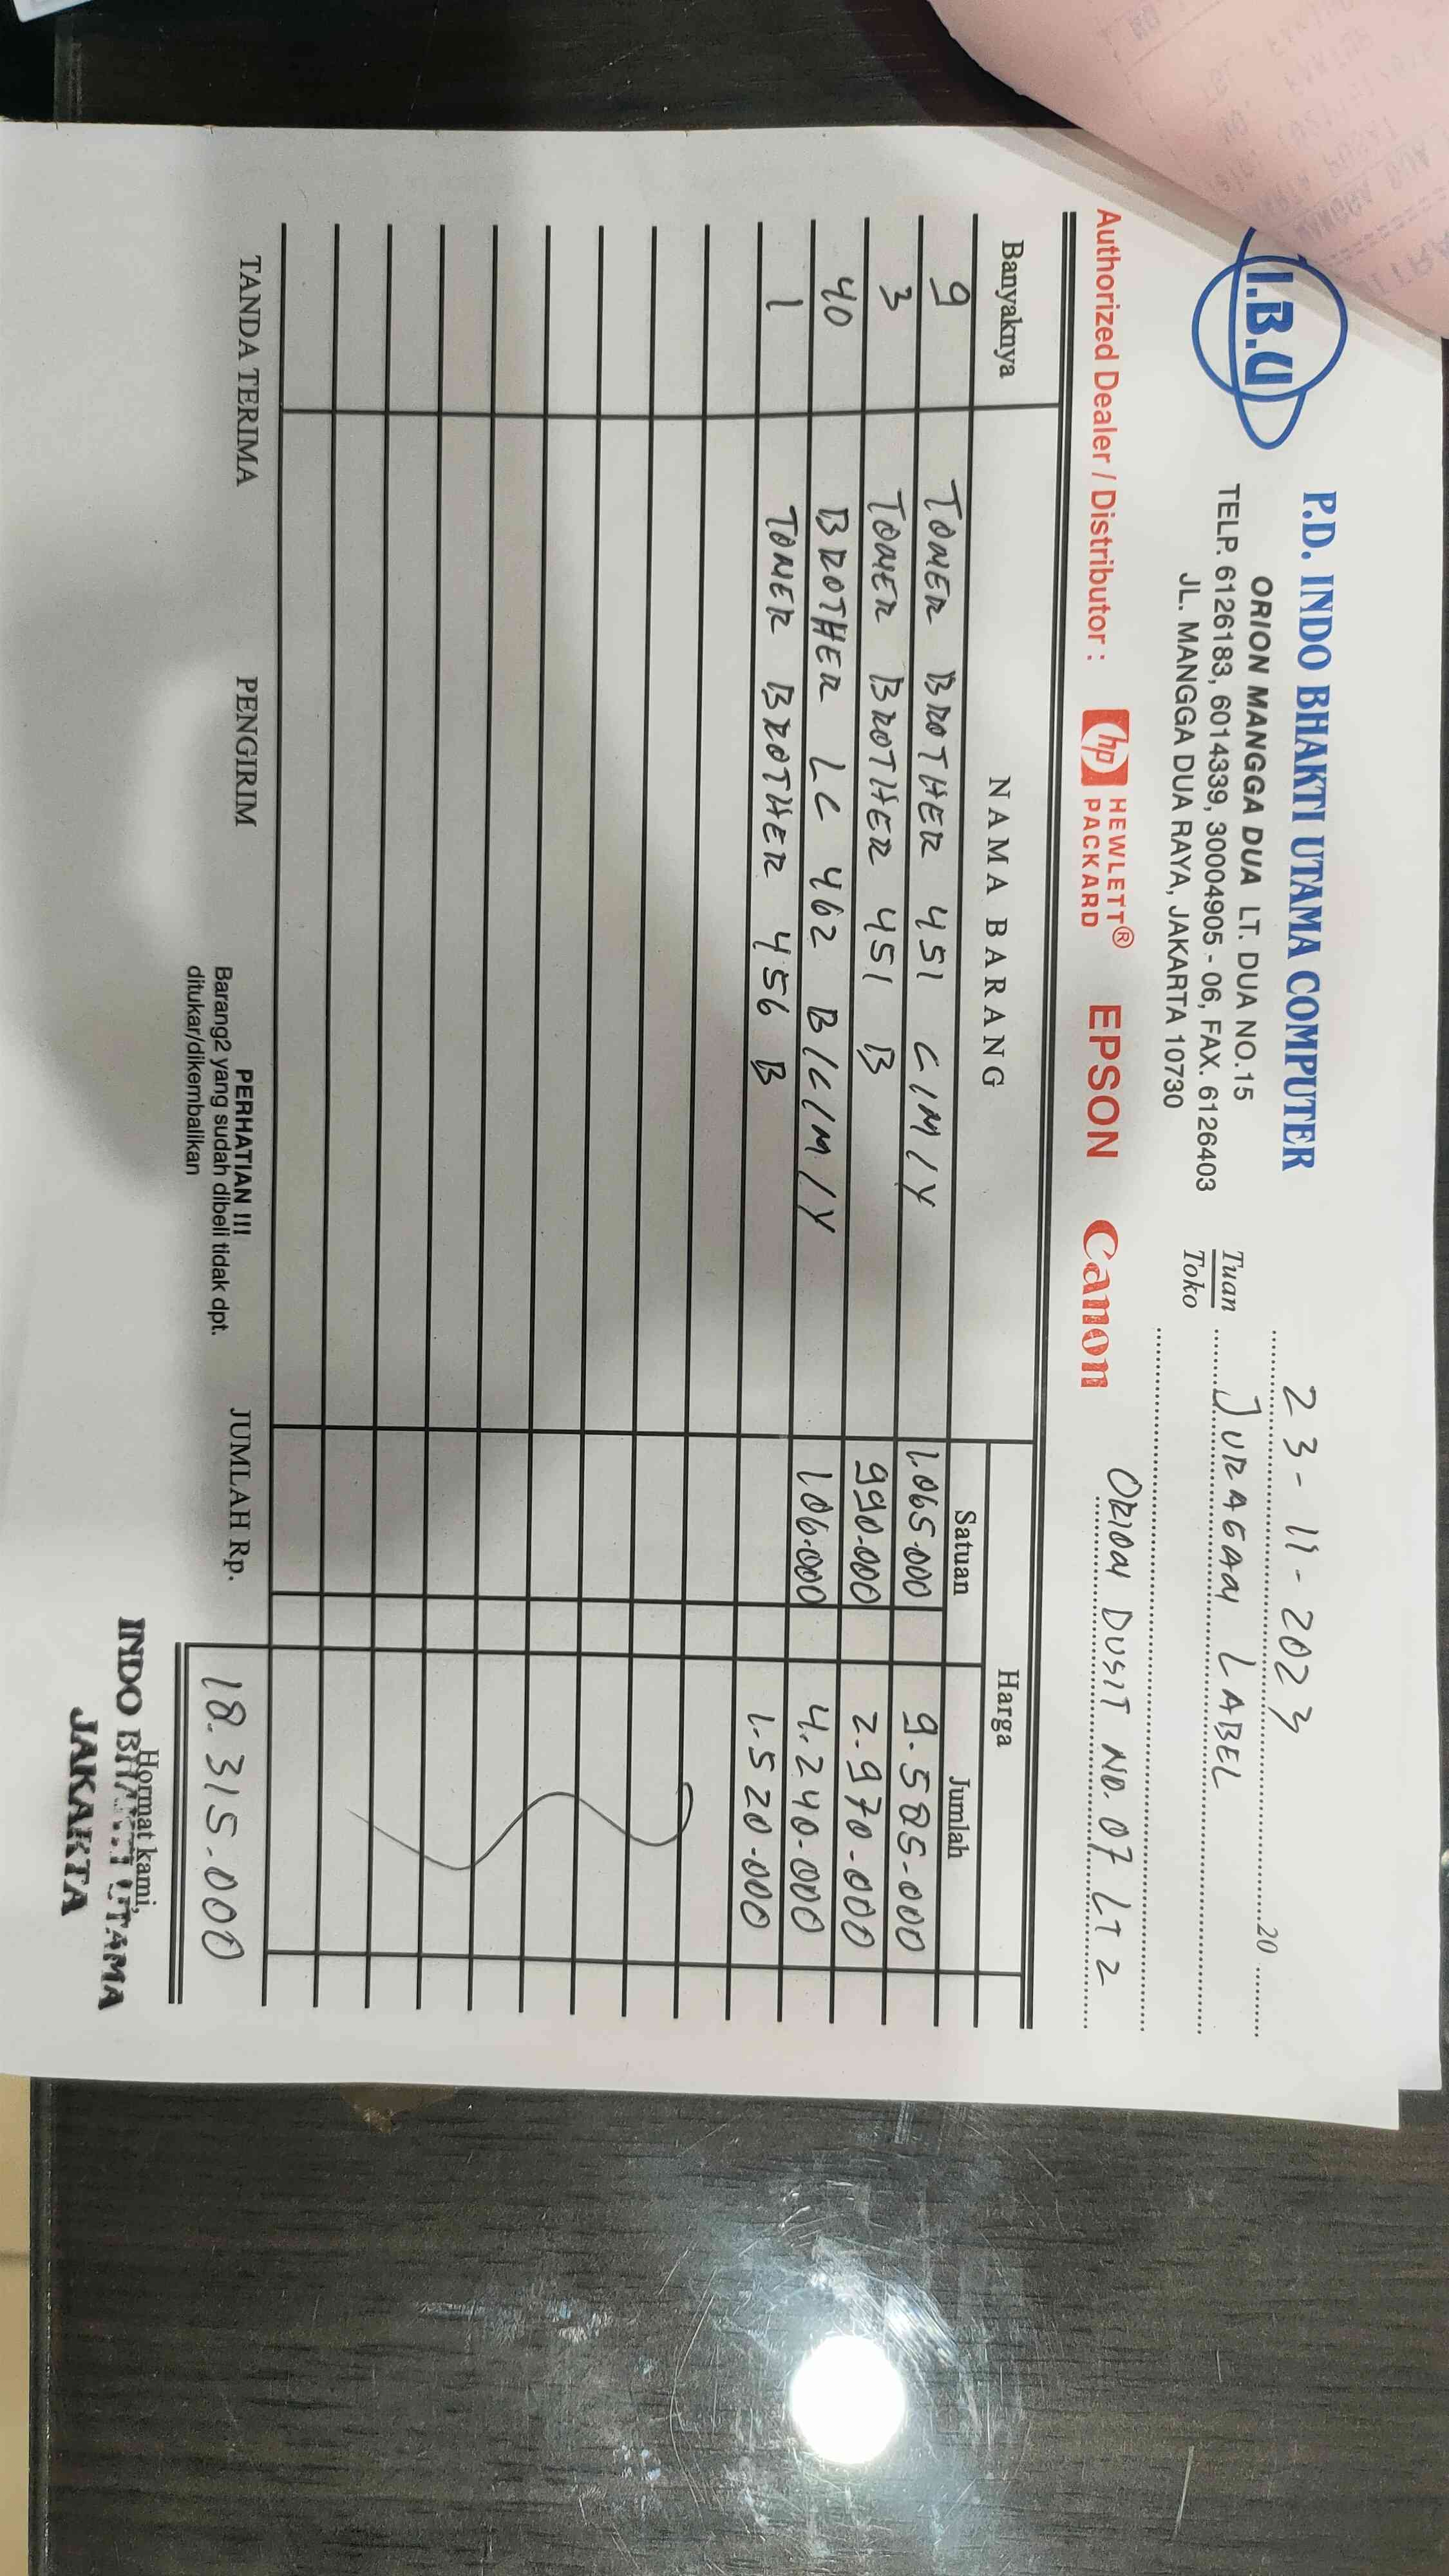 I.B.U
P.D. INDO BHAKTI UTAMA COMPUTER
ORION MANGGA DUA LT. DUA NO.15
TELP. 6126183, 6014339, 30004905 - 06, FAX. 6126403
JL. MANGGA DUA RAYA, JAKARTA 10730
23-11-2023 20
Tuan
Toko
JURAGAN LABEL
ORION DUSIT NO.07 LT 2
Authorized Dealer / Distributor : hp HEWLETT® PACKARD EPSON Canon
Banyaknya NAMA BARANG Harga
Satuan Jumlah
9 TONER BROTHER 451 C/M/Y 1.065.000 9.585.000
3 TONER BROTHER 451 B 990.000 2.970.000
40 BROTHER LC 462 B/C/M/Y 106.000 4.240.000
1 TONER BROTHER 456 B 1.520.000
TANDA TERIMA PENGIRIM JUMLAH Rp. 18.315.000
PERHATIAN !!!
Barang2 yang sudah dibeli tidak dpt.
ditukar/dikembalikan
Hormat kami,
INDO BHAKTI UTAMA
JAKARTA